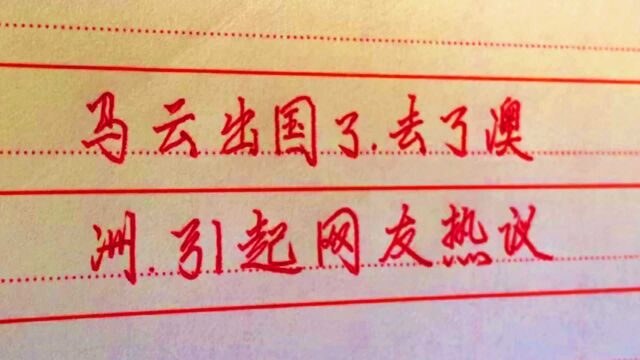 马云出国了.去了澳
洲.引起网友热议